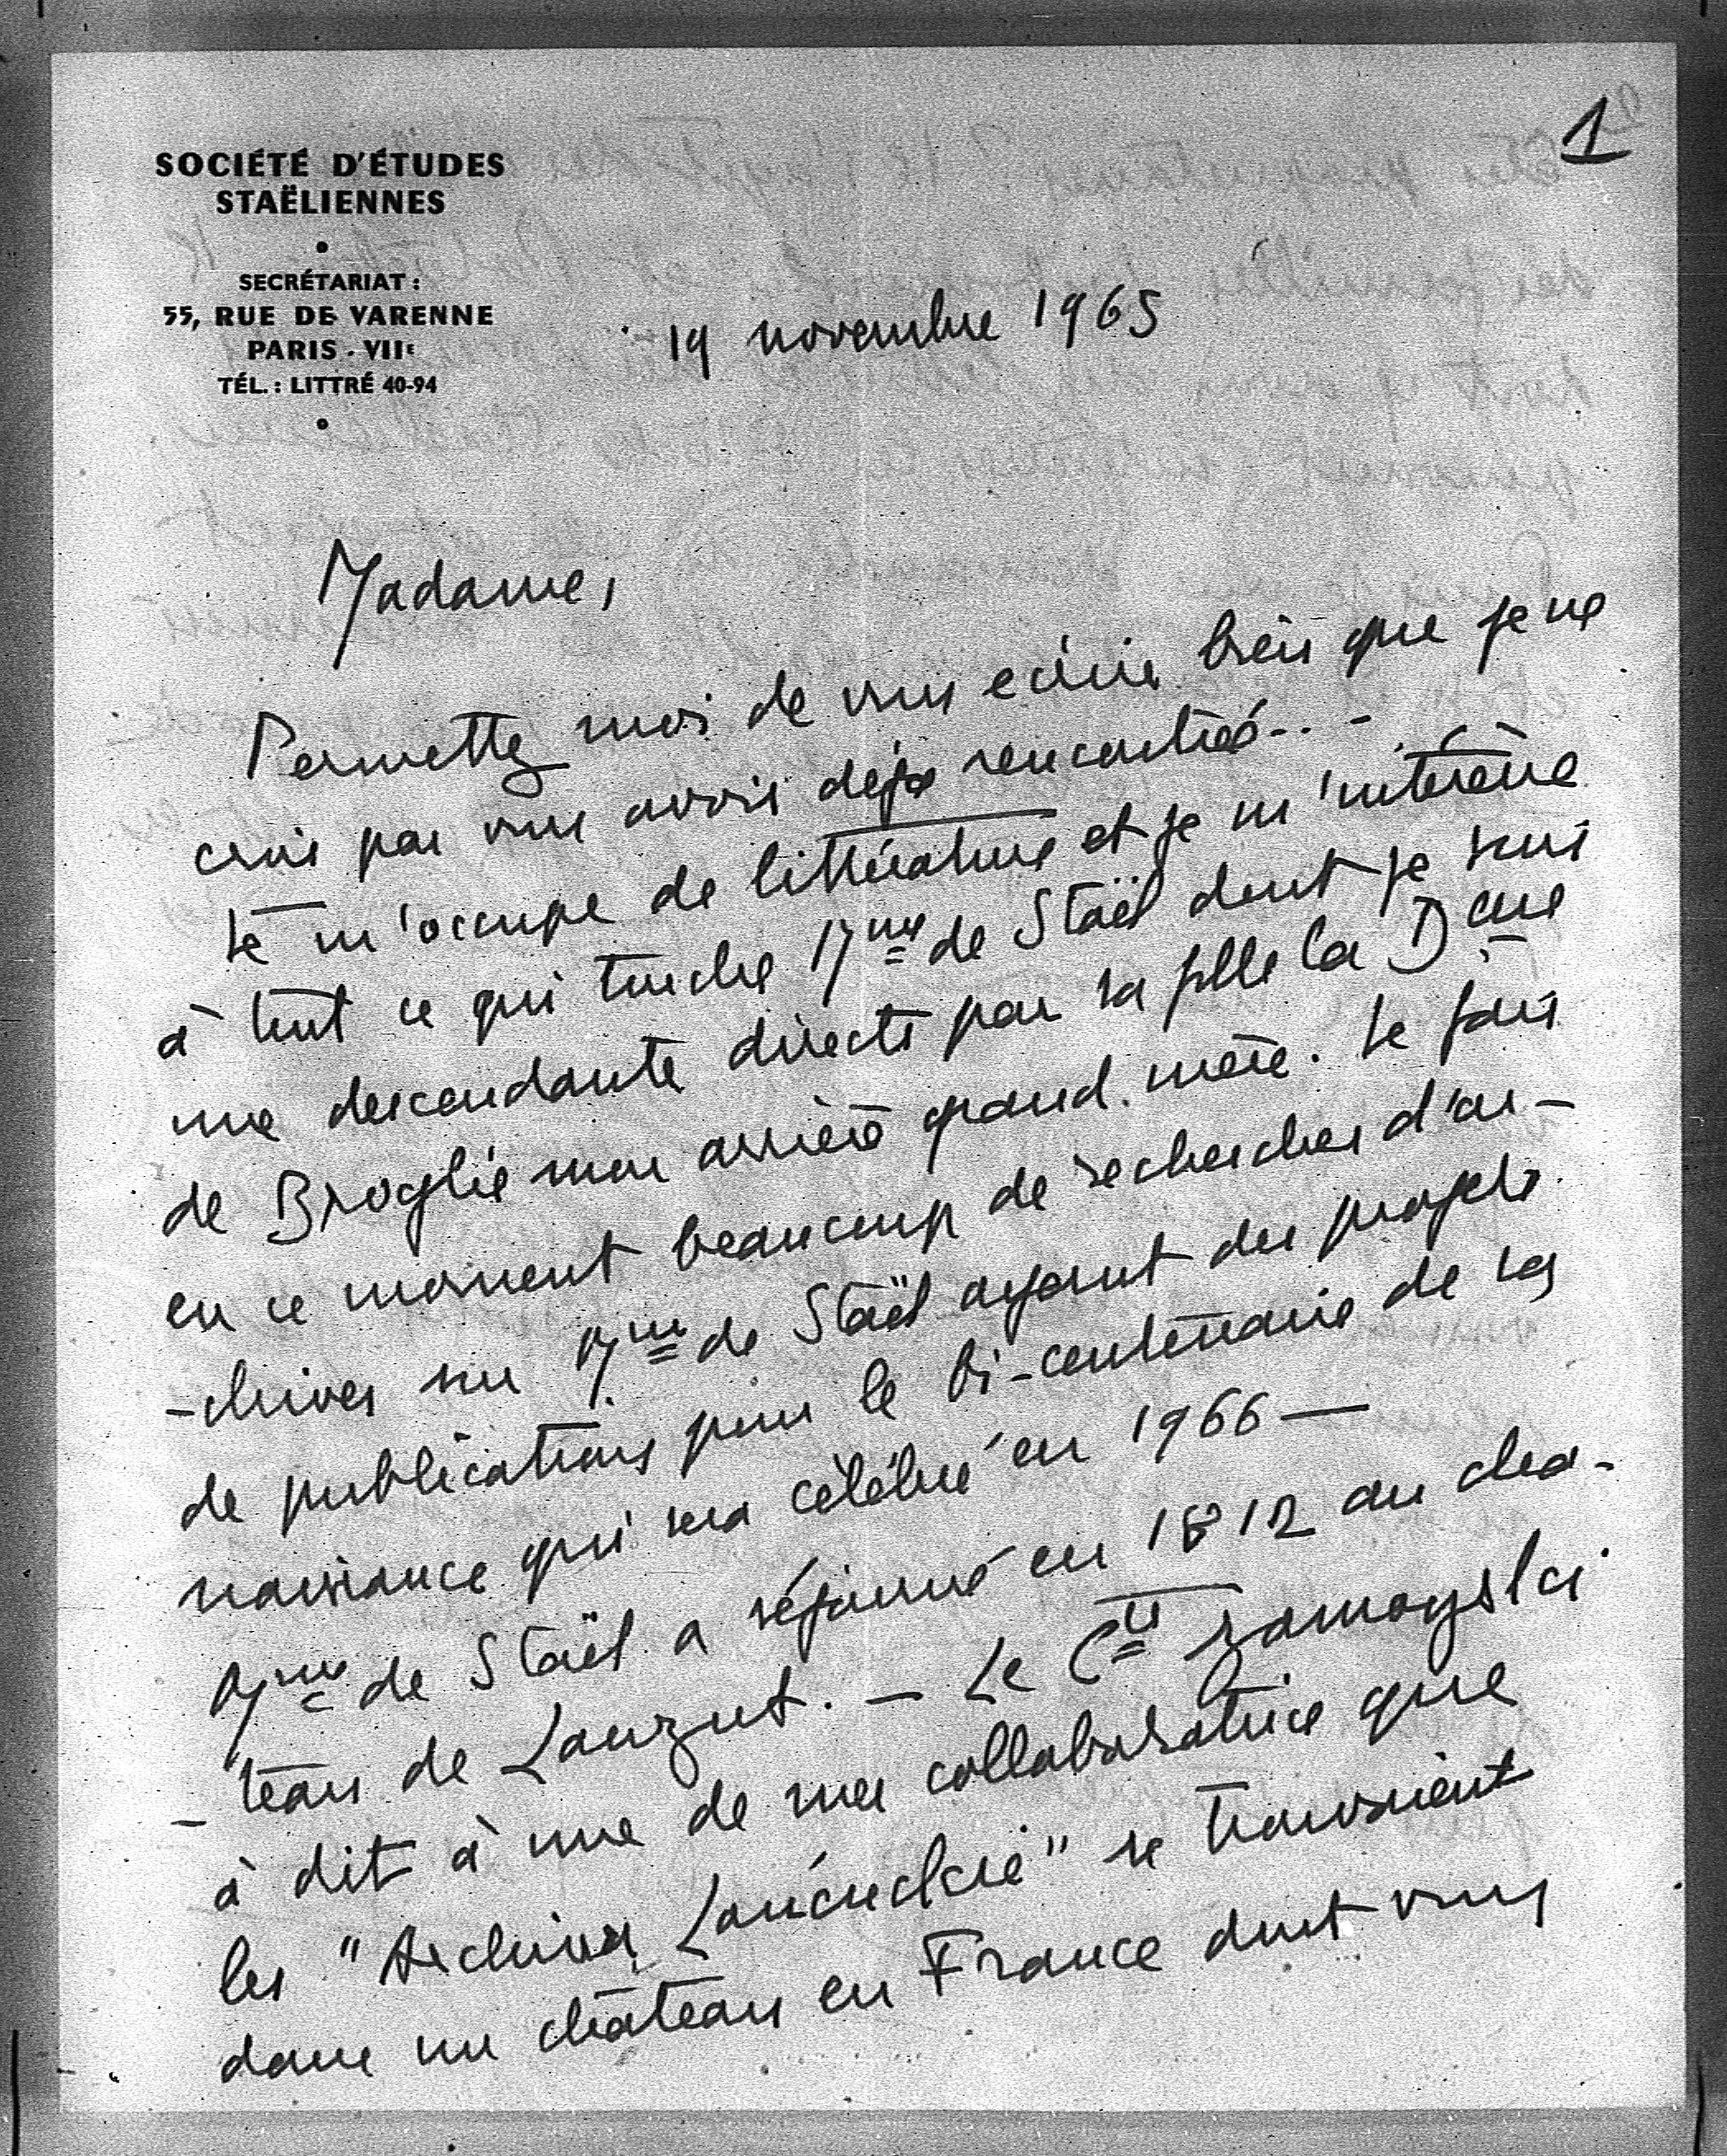 1
SOCIÉTÉ D'ÉTUDES
STAËLIENNES
SECRÉTARIAT :
55, RUE DE VARENNE
PARIS - VIIe
TÉL. : LITTRÉ 40-94
19 novembre 1965
Madame,
Permettez moi de vous ecrire bien que je ne
crois pas vous avoir déjà rencontrée...-
Je m'occupe de littérature et je m'intéresse
à tout ce qui touche Mme de Staël dont je suis
une descendante directe par sa fille la Dsse
de Broglie mon arrière grand-mère. Je fais
en ce moment beaucoup de recherches d'ar-
-chives sur Mme de Staël ayant des projets
de publications pour le bi-centenaire de sa
naissance qui sera célébré en 1966 —
Mme de Staël a séjourné en 1812 au cha-
-teau de Lanzut. — Le Cte Zamoyski
à dit à une de mes collaboratrice que
les "Archives Lańcuckie" se trouvaient
dans un château en France dont vous